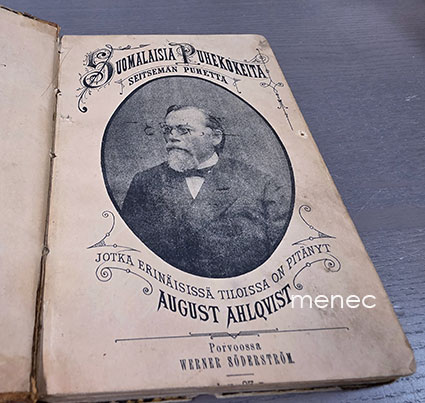 SUOMALAISIA PUHEKOKEITA
SEITSEMÄN PUHETTA
JOTKA ERINÄISISSÄ TILOISSA ON PITÄNYT
AUGUST AHLQVIST
menec
Porvoossa
WERNER SÖDERSTRÖM.